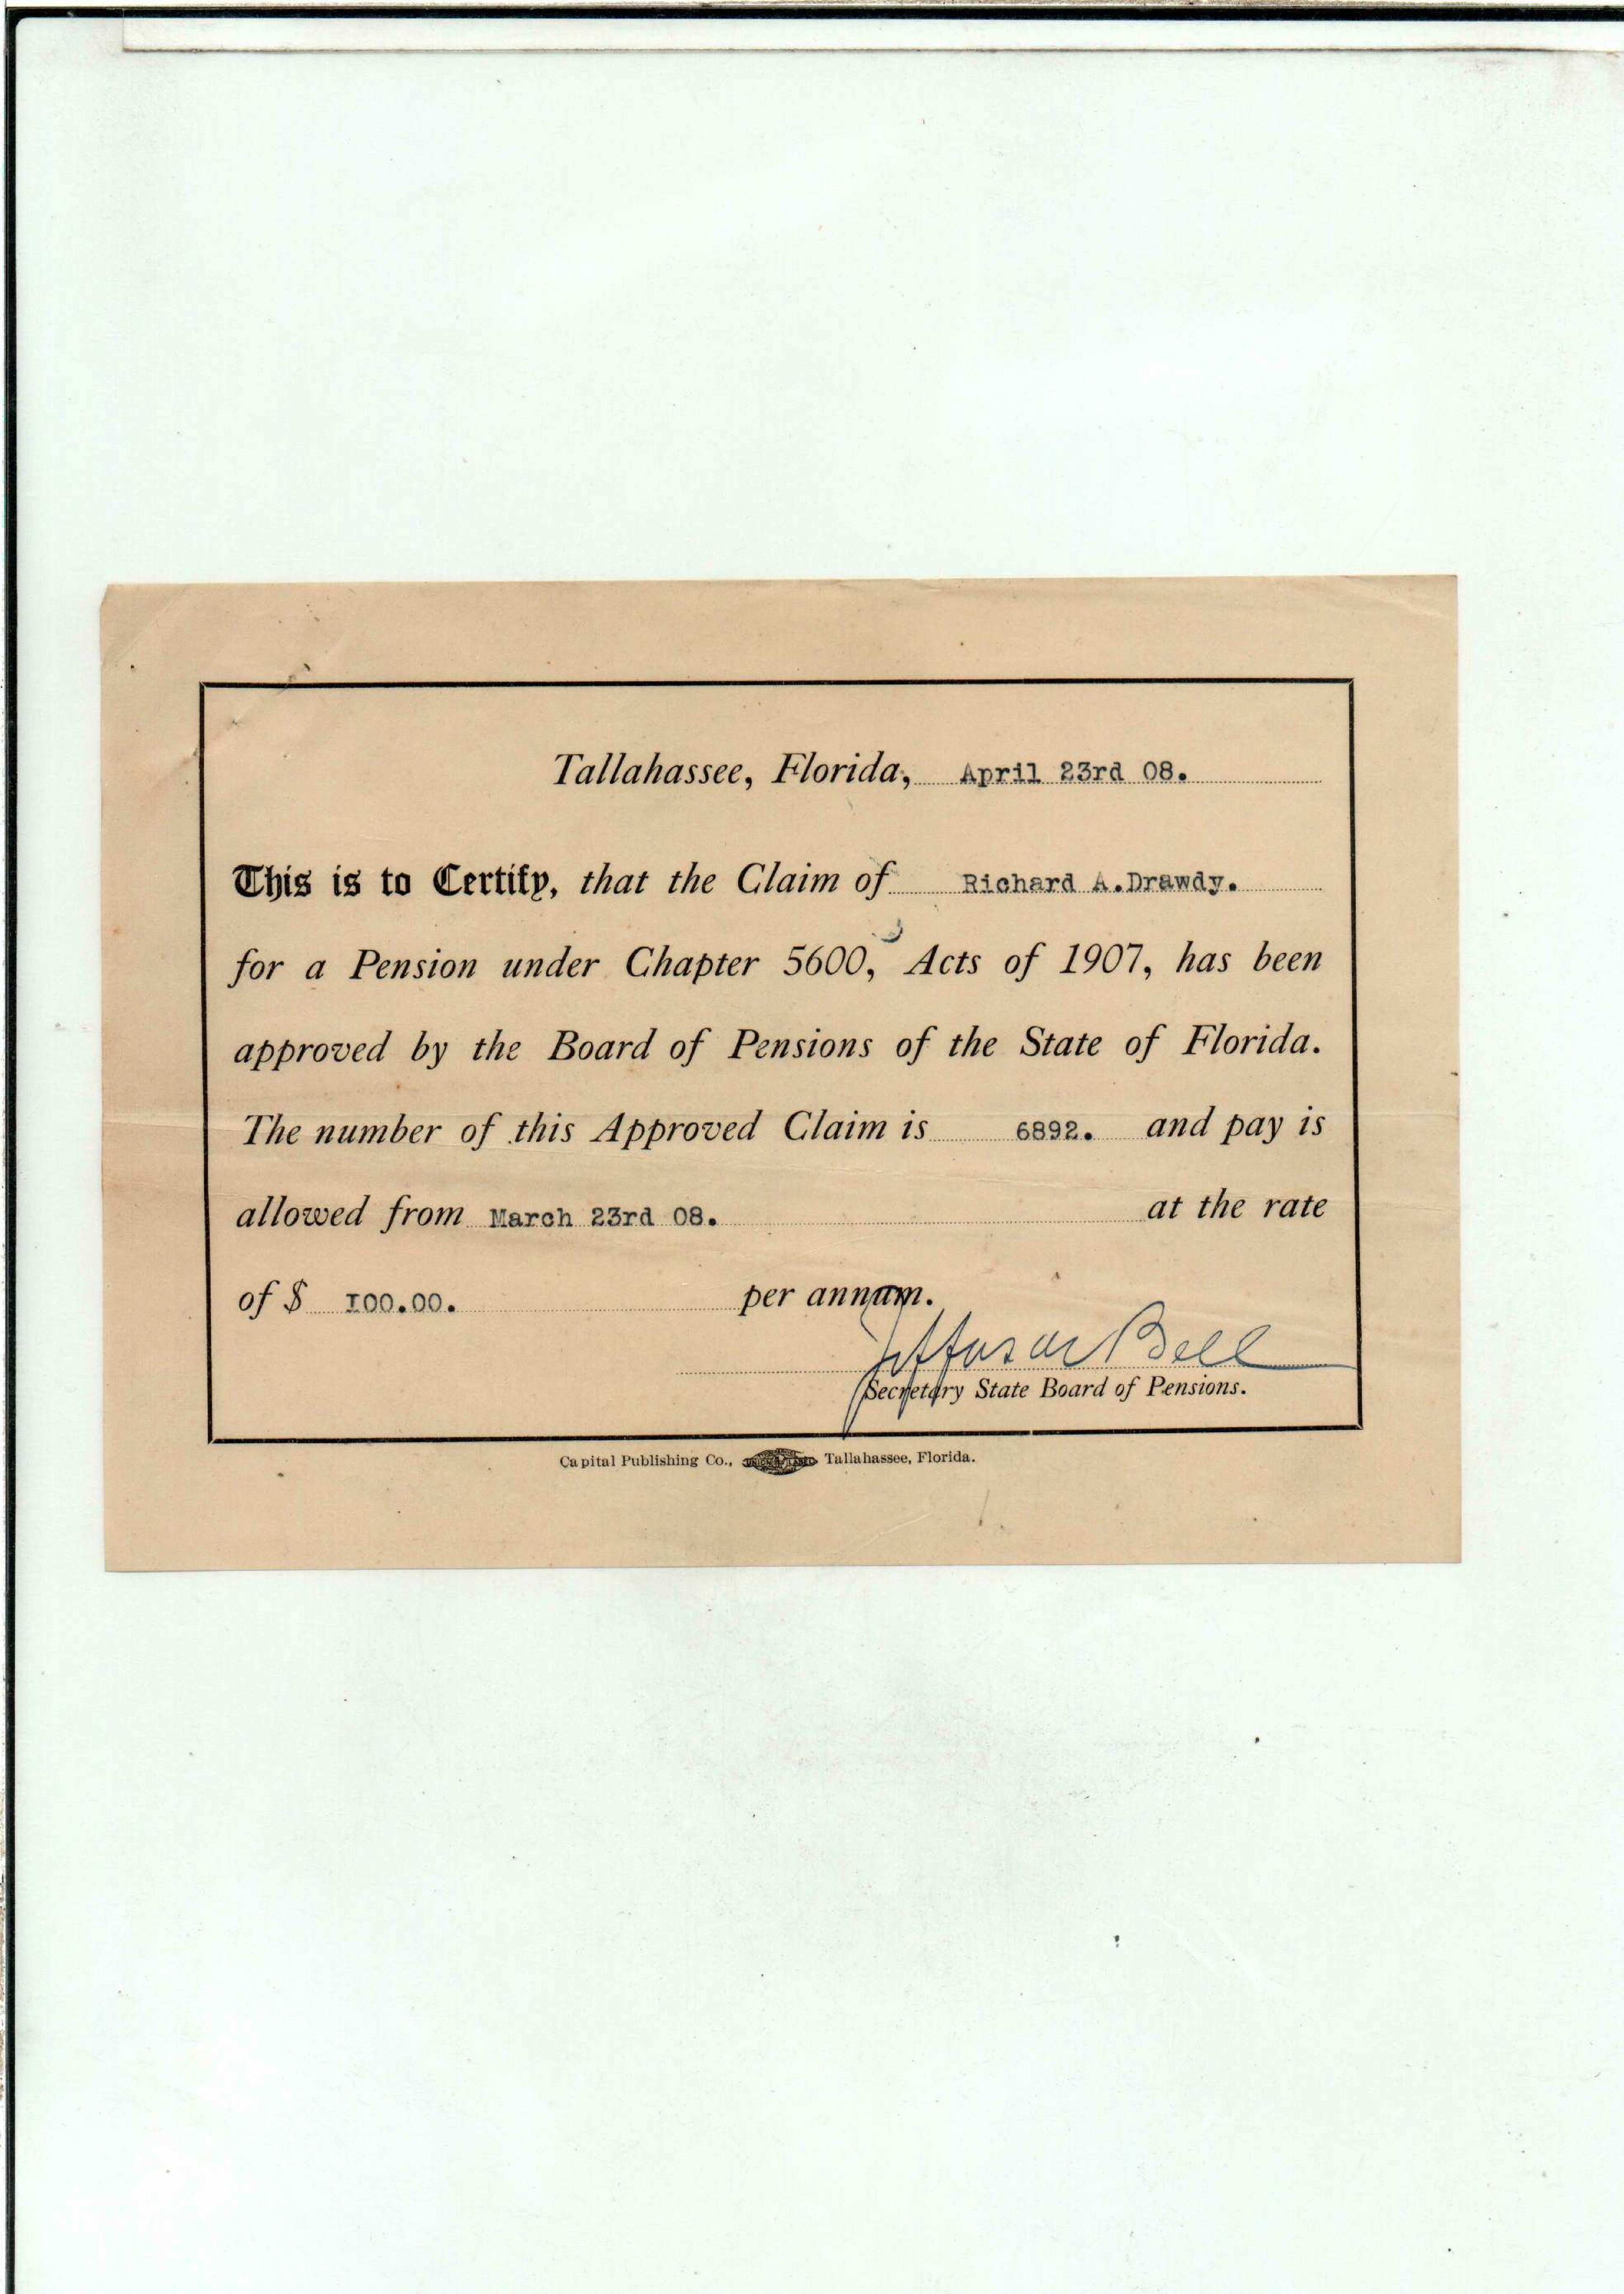 Tallahassee, Florida, April 23rd 08.
This is to Certify, that the Claim of Richard A.Drawdy.
for a Pension under Chapter 5600, Acts of 1907, has been
approved by the Board of Pensions of the State of Florida.
The number of this Approved Claim is 6892. and pay is
allowed from March 23rd 08. at the rate
of $ I00.00. per annum.
Bell
Secretary State Board of Pensions.
Capital Publishing Co., Tallahassee, Florida.